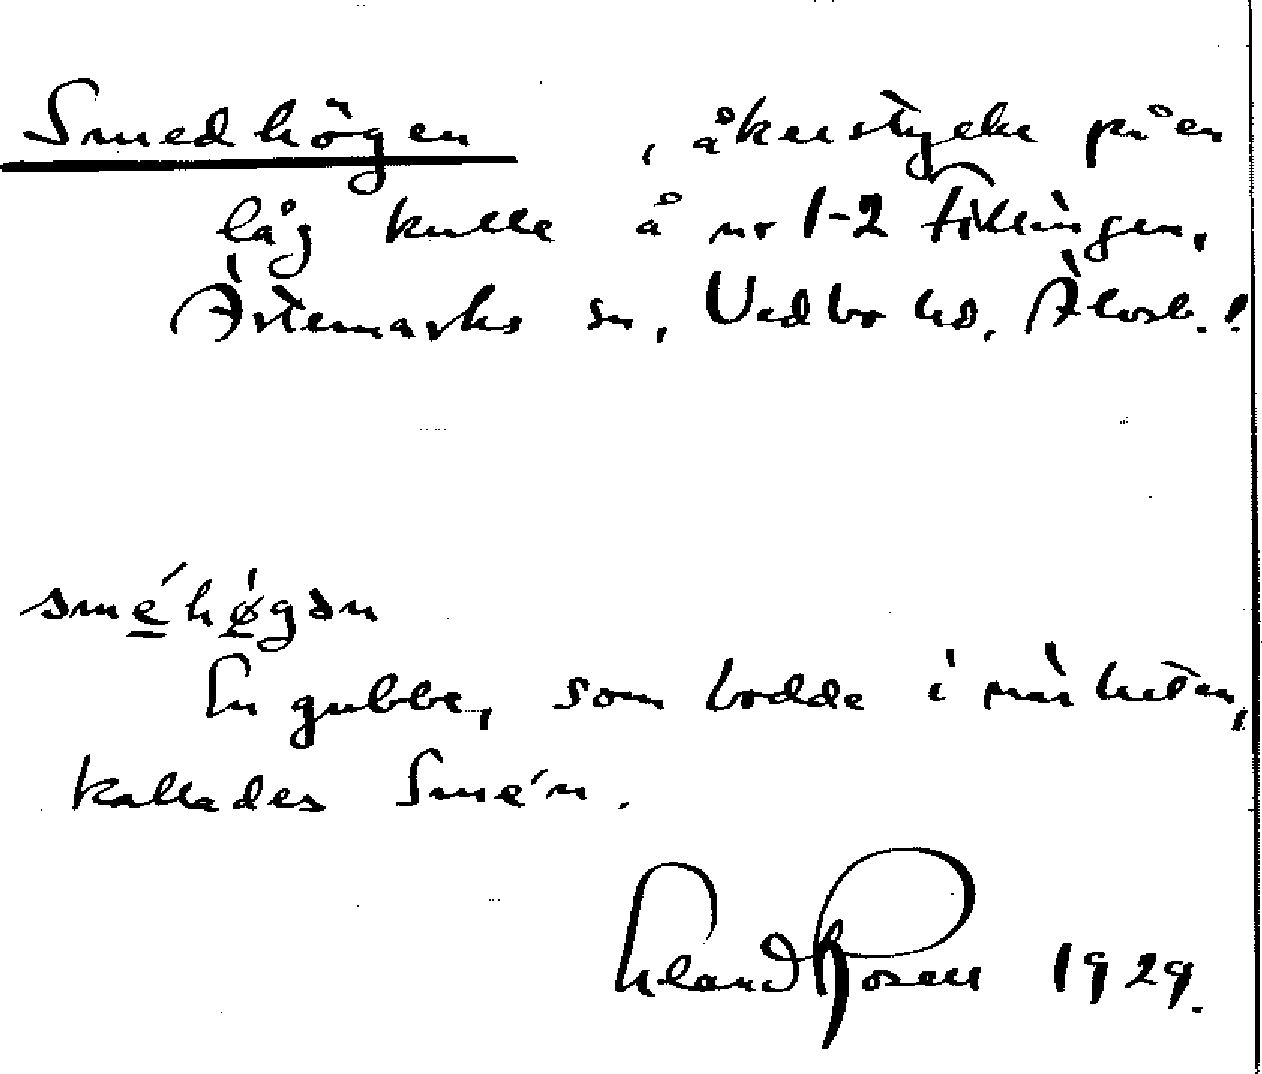 Smedhögen, åkerstycke på en
låg kulle å nr 1-2 Fiklingen,
Ärtemarks sn, Vedbo hd, Älvsb. l.
sméhǿ̱gən
En gubbe, som bodde i närheten,
kallades Sme'n.
Erland Rosell 1929.